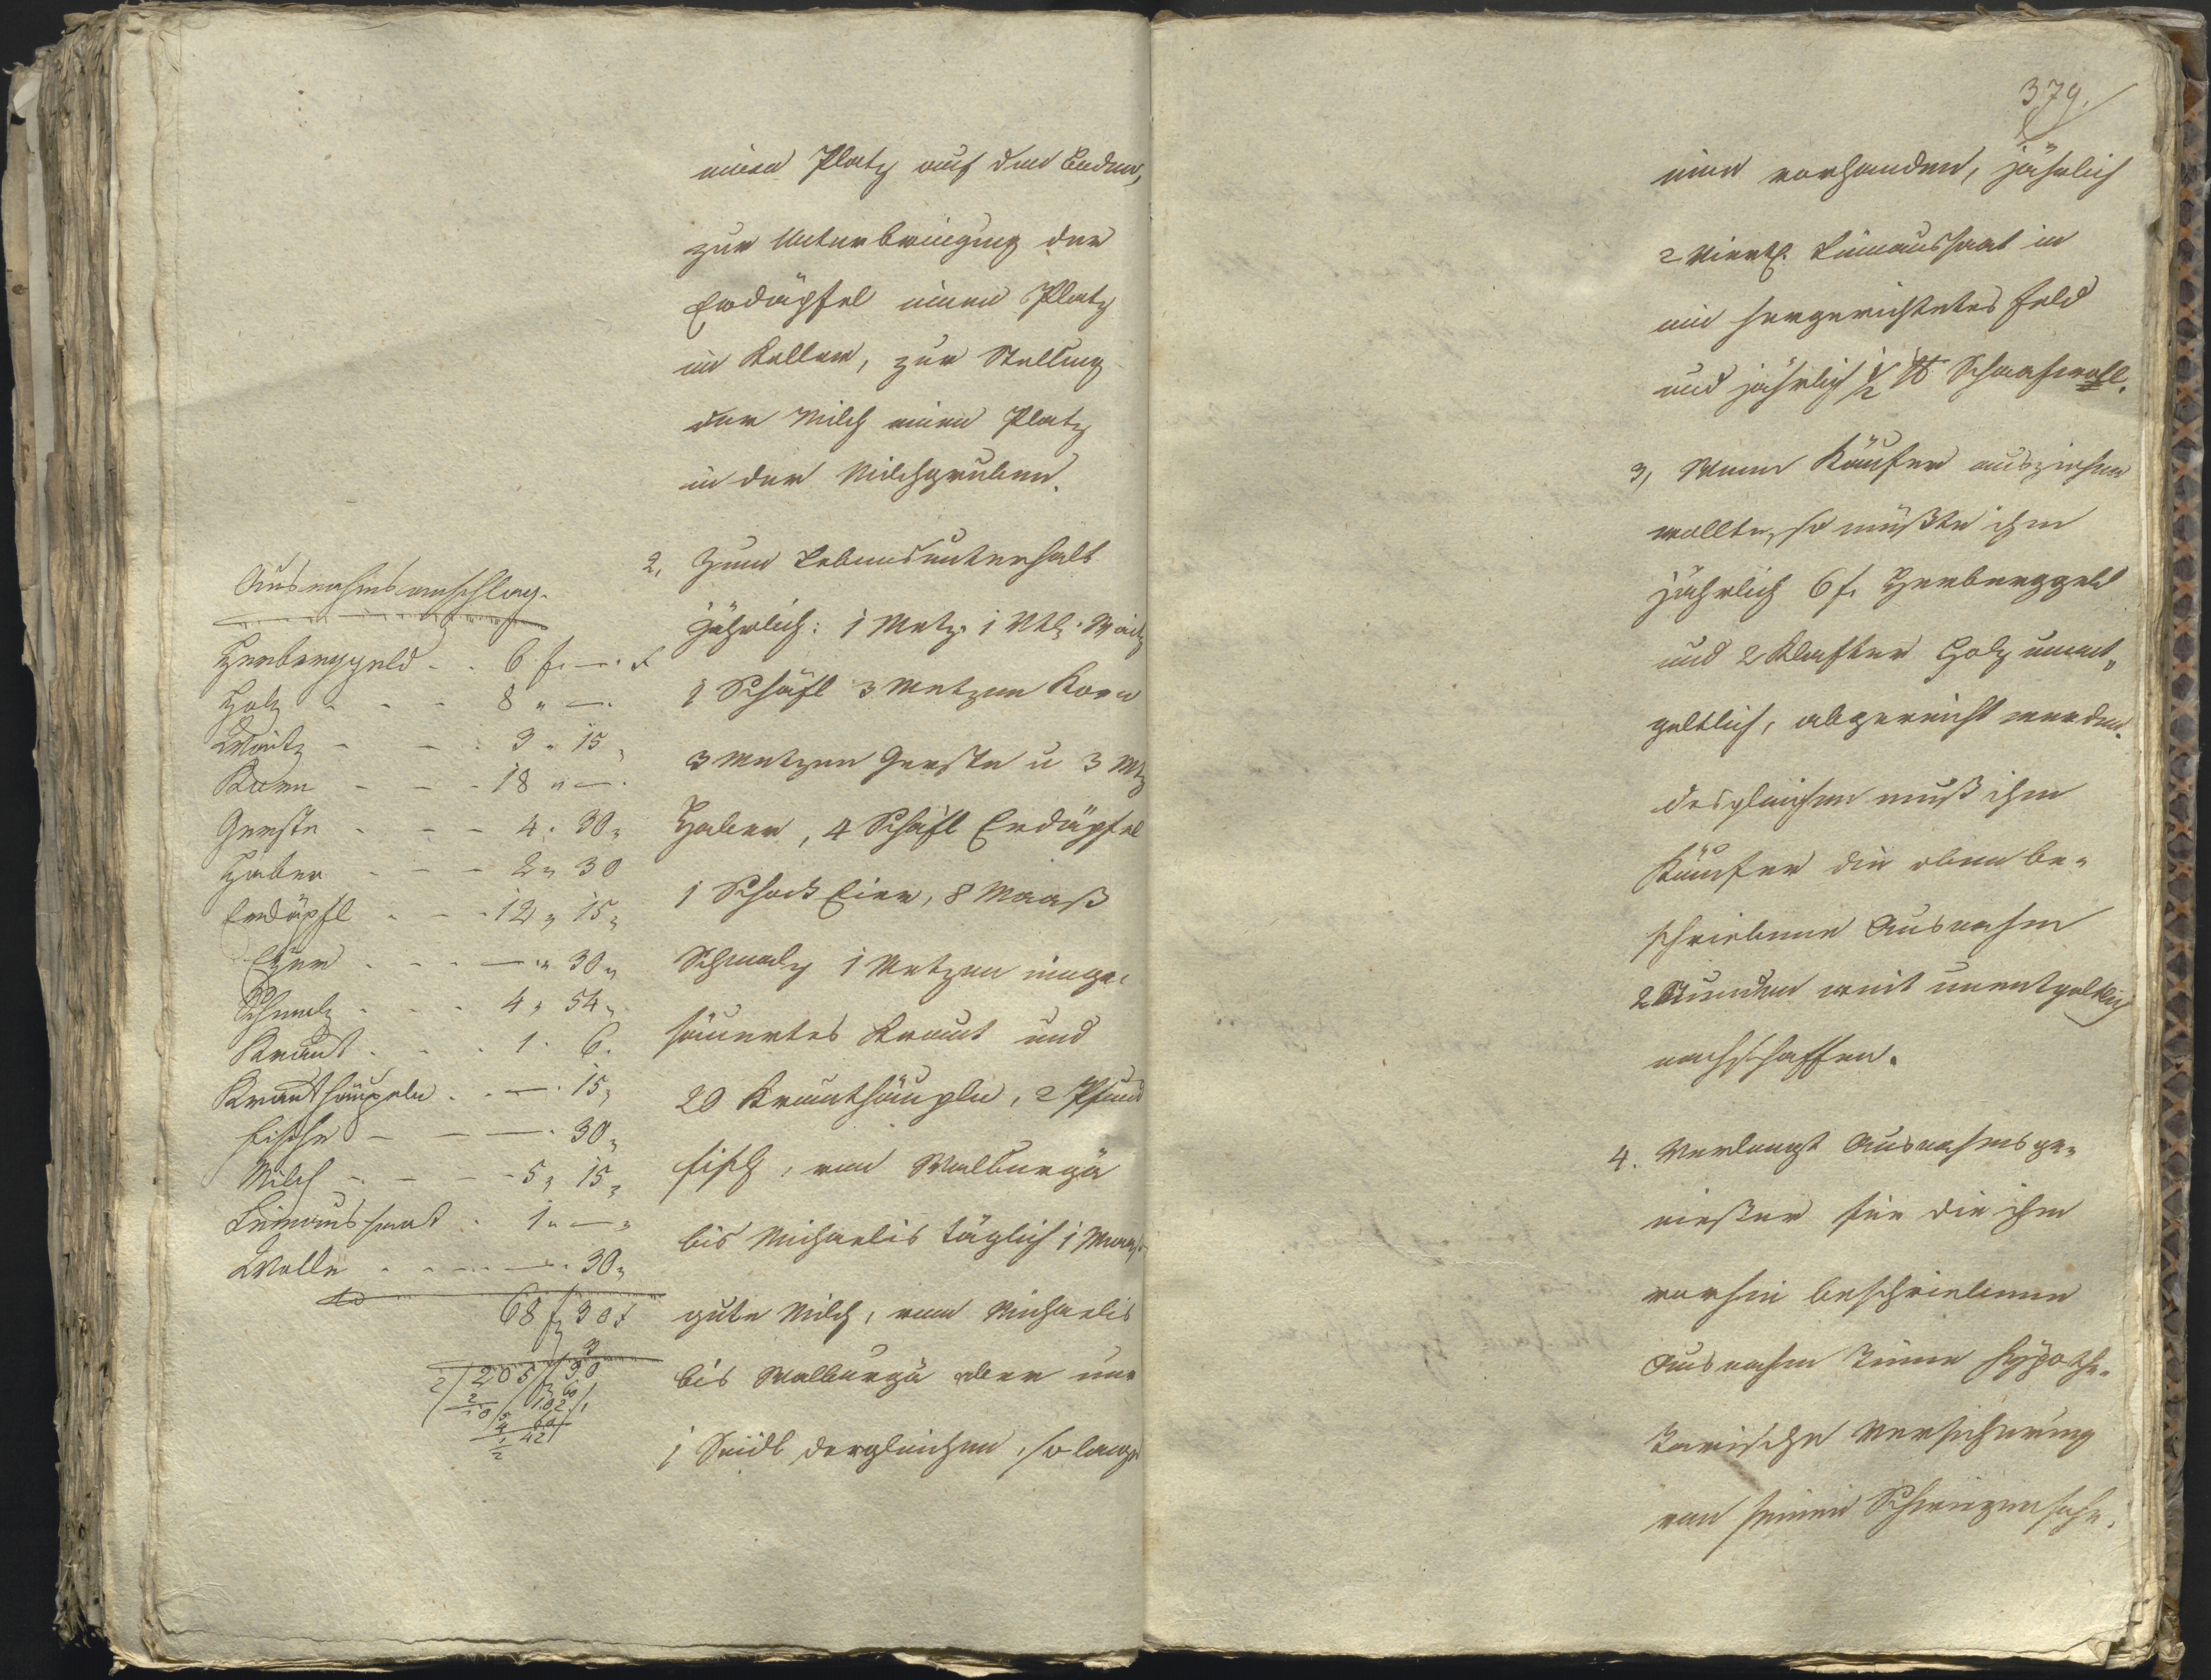 einen Platz auf dem Boden,
zur Unterbringung der
Erdäpfel einen Platz
im Keller, zur Stellung
der Milch einen Platz
in der Milchgruben.
2, Zum Lebensunterhalt
jährlich: 1 Metz. 1 Vtl. Waitz
1 Schäfl 3 Metzen Korn
3 Metzen Gerste u 3 Mtz
Haber, 4 Schäfl Erdäpfel
1 Schock Eier, 8 Maaß
Schmalz 1 Metzen einge-
säuertes Kraut und
20 Krauthäupln, 2 Pfund
Fisch, von Walburgä
bis Michaelis täglich 1 Maaß
gute Milch, vom Michaelis
bis Walburgä aber nur
1 Seidl dergleichen, so lange
Ausnahmsanschlag.
Herberggeld - - 6 f. —. x
Holz - - - 8 " —.
Waitz - - - 3 " 15 "
Korn - - - 18 " —.
Gerste - - - 4 . 30 "
Haber - - - 2 " 30
Erdäpfl - - - 12 " 15 "
Eyer - - - — " 30 "
Schmalz - - - 4 " 54 "
Kraut - - - 1 . 6.
Krauthäupeln - - — . 15 "
Fische - - — . 30 "
Milch - - - 5 " 15 "
Leinaussaat . 1 " — "
Wolle - - - — . 30 "
68 f 30 x
3
205 / 30
379.
eine vorhanden, jährlich
2 Viertl. Leinaussaat in
ein hergerichtetes Feld
und jährlich 1/2 ℔ Schaafwoll.
3, Wenn Käufer ausziehen
wollte, so müßte ihm
jährlich 6 f. Herberggeld
und 2 Klafter Holz unent-
geltlich, abgereicht werden.
desgleichen muß ihm
Käufer die oben be-
schriebene Ausnahm
2 Stunden weit unentgeltlich
nachschaffen.
4. Verlangt Ausnahmsge-
nießer für die ihm
vorhin beschriebene
Ausnahm keine hypothe-
karische Versicherung
von seinem Schwiegersohn.